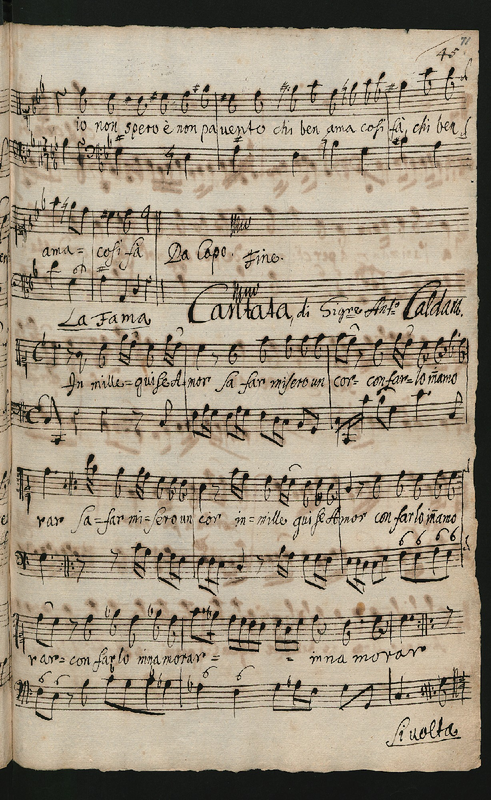 71
45
io non spero e non pavento chi ben ama cosi fà, chi ben
ama = cosi fa Da Capo. Fine.
La Fama Cantata, di Sigre Anto Caldara.
In mille = qui se Amor sa far misero un cor = con far = lo inamo
rar sa = far mi = sero un cor in = mille qui se Amor con far lo inamo
rar = con far lo innamorar = - innamorar
Si volta